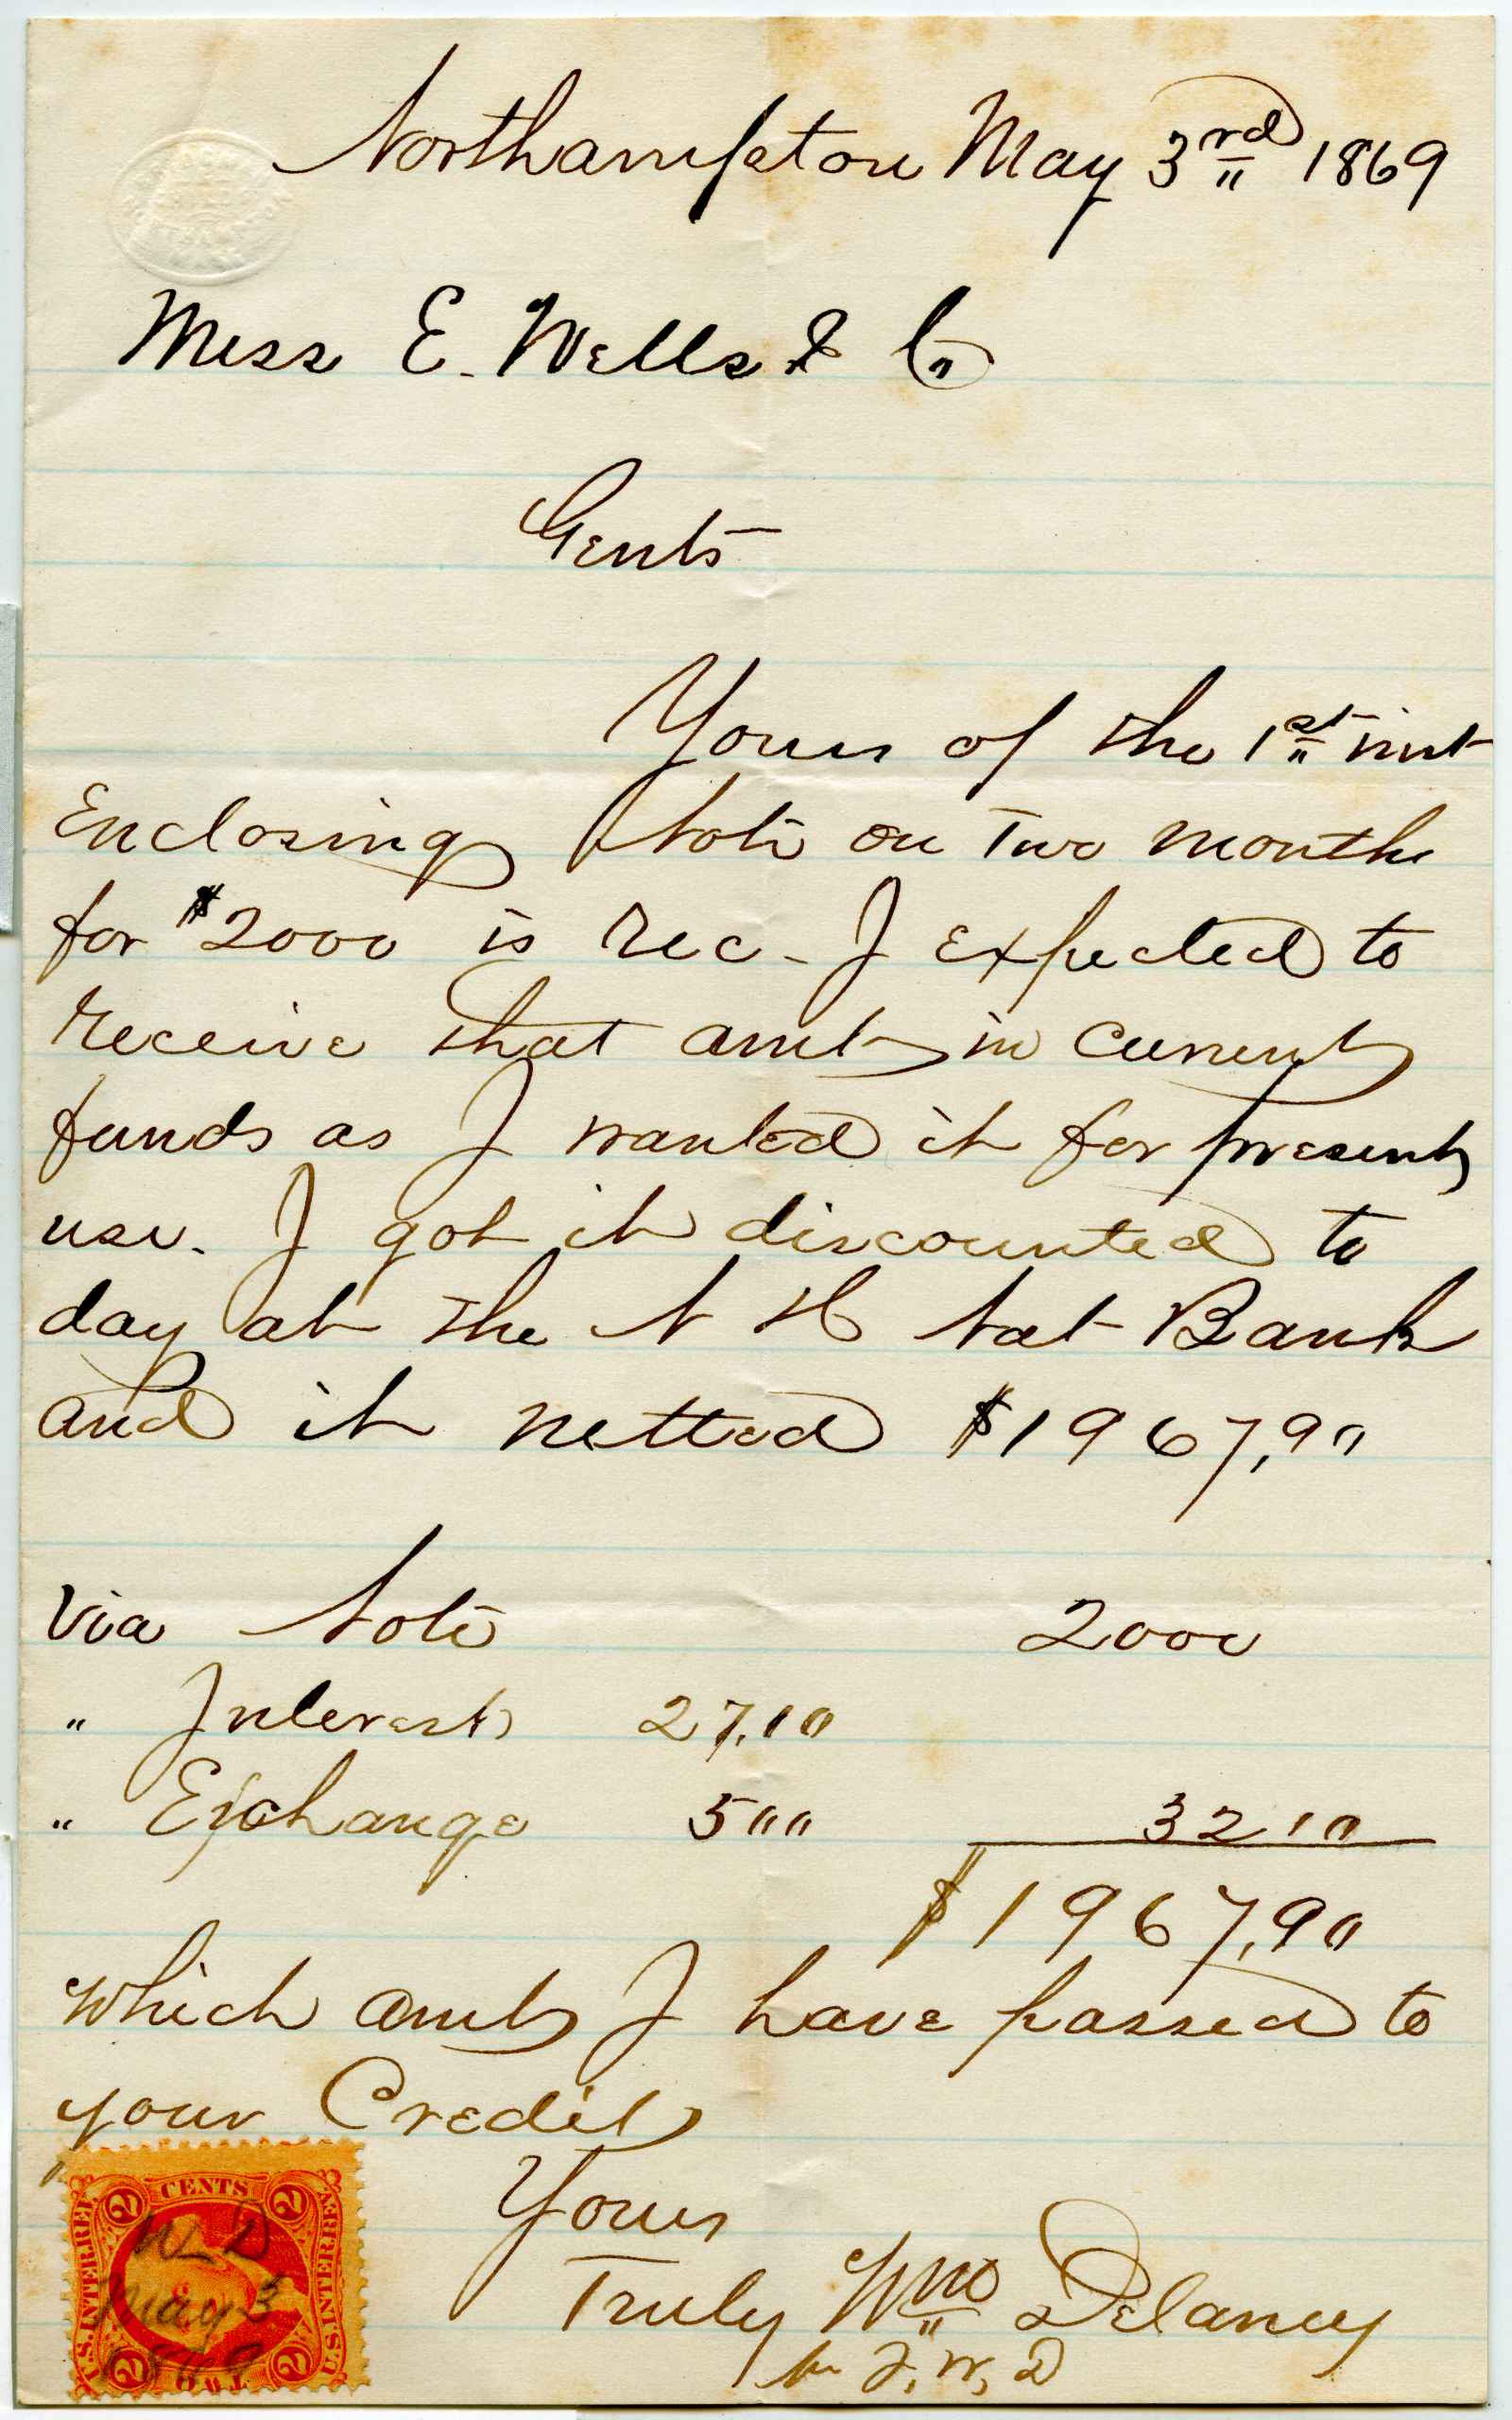 Northampton May 3rd 1869
Mess E. Wells & Co
Gents
Yours of the 1st inst
Enclosing Note on Two months
for $2000 is Rec - I expected to
receive that amt in current
funds as I wanted it for present
use. I got it discounted to
day at the N H Nat Bank
and it netted $1967,90
Via Note 2000
" Interest 27.10
" Exchange 500 32 10
$1967,90
which amt I have passed to
your Credit
Yours
Truly Wm Delaney
2 CENTS 2
U.S. INTER. REV. U.S. INTER. REV.
W D
May 3
1869
2 TWO 2